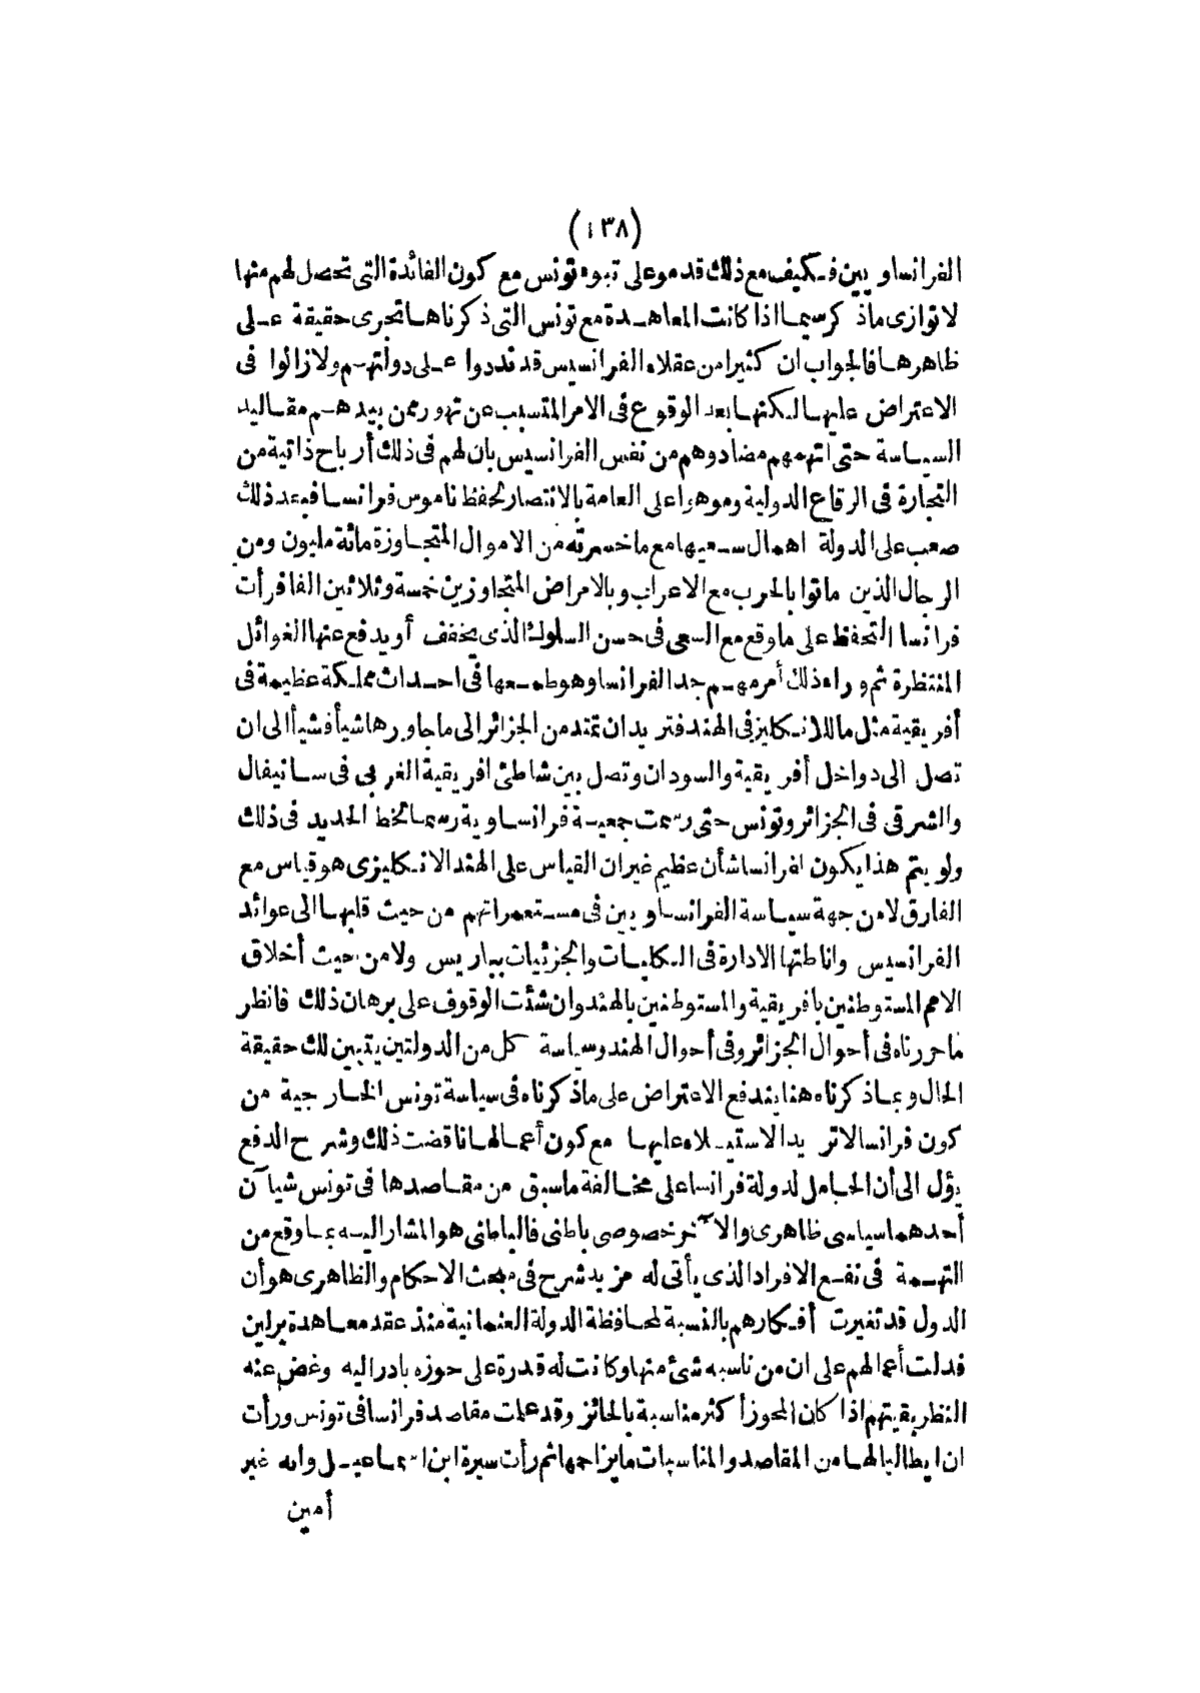 (١٣٨)
الفرانساويين فكيف مع ذلك قدموا على تبوء تونس مع كون الفائدة التى تحصل لهم منها
لا توازى ماذكر سيما اذا كانت المعاهدة مع تونس التى ذكرناها تجرى حقيقة على
ظاهرها فالجواب ان كثيرا من عقلاء الفرانسيس قد نددوا على دولتهم ولا زالوا فى
الاعتراض عليها لكنها بعد الوقوع فى الامر المتسبب عن تهور ممن بيدهم مقاليد
السياسة حتى اتهمهم مضادوهم من نفس الفرانسيس بان لهم فى ذلك أرباح ذاتية من
التجارة فى الرقاع الدولية وموهوا على العامة بالانتصار لحفظ ناموس فرانسا فبعد ذلك
صعب على الدولة اهمال سعيها مع ما خسرته من الاموال المتجاوزة مائة مليون ومن
الرجال الذين ماتوا بالحرب مع الاعراب وبالامراض المتجاوزين خمسة وثلاثين الفا فرأت
فرانسا التحفظ على ما وقع مع السعى فى حسن السلوك الذى يخفف أو يدفع عنها الغوائل
المنتظرة ثم وراء ذلك أمر مهم جد الفرانسا وهو طمعها فى احداث مملكة عظيمة فى
أفريقية مثل ما للانكليز فى الهند فتريد ان تمتد من الجزائر الى ما جاورها شيأ فشيأ الى ان
تصل الى دواخل أفريقية والسودان وتصل بين شاطئ افريقية الغربى فى سانيغال
والشرقى فى الجزائر وتونس حتى رسمت جمعية فرانساوية رسما لخط الحديد فى ذلك
ولو يتم هذا يكون لفرانسا شأن عظيم غير ان القياس على الهند الانكليزى هو قياس مع
الفارق لا من جهة سياسة الفرانساويين فى مستعمراتهم من حيث قلبها الى عوائد
الفرانسيس واناطتها الادارة فى الكليات والجزئيات بباريس ولا من حيث أخلاق
الامم المستوطنين بافريقية والمستوطنين بالهند وان شئت الوقوف على برهان ذلك فانظر
ما حررناه فى أحوال الجزائر وفى أحوال الهند وسياسة كل من الدولتين يتبين لك حقيقة
الحال وبما ذكرناه هنا يندفع الاعتراض على ماذكرناه فى سياسة تونس الخارجية من
كون فرانسا لا تريد الاستيلاء عليها مع كون أعمالها ناقضت ذلك وشرح الدفع
يؤل الى أن الحامل لدولة فرانسا على مخالفة ما سبق من مقاصدها فى تونس شيآن
أحدهما سياسى ظاهرى والآخر خصوصى باطنى فالباطنى هو المشار اليه بما وقع من
التهمة فى نفع الافراد الذى يأتى له مزيد شرح فى مبحث الاحكام والظاهرى هو أن
الدول قد تغيرت أفكارهم بالنسبة لمحافظة الدولة العثمانية منذ عقد معاهدة برلين
فدلت أعمالهم على ان من ناسبه شئ منها وكانت له قدرة على حوزه بادر اليه وغض عنه
النظر بقيتهم اذا كان المحوز أكثر مناسبة بالحائز وقد علمت مقاصد فرانسا فى تونس ورأت
ان ايطاليا لها من المقاصد والمناسبات ما يزاحمها ثم رأت سيرة ابن اسماعيل وانه غير
أمين